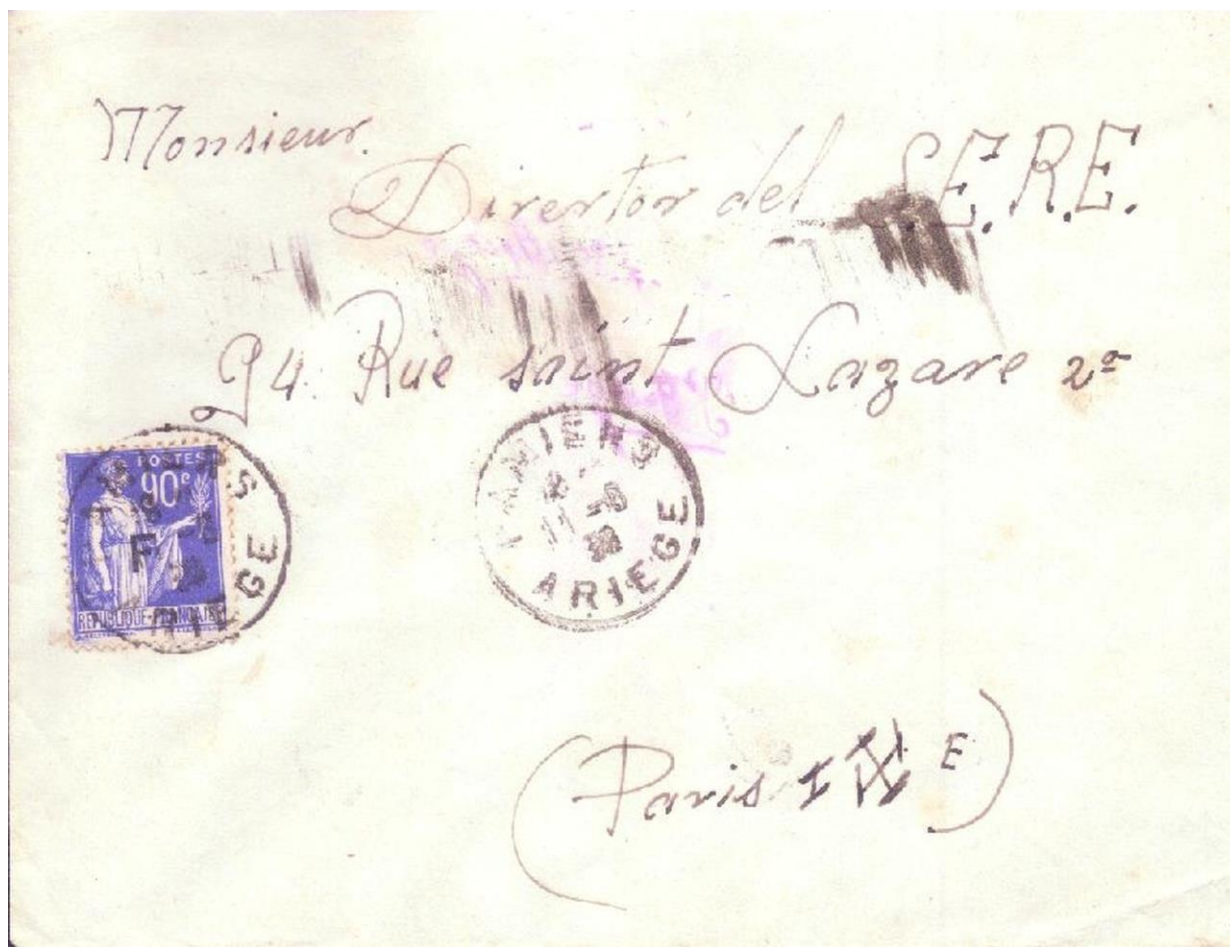 Monsieur.
Director del S.E.R.E.
94. Rue saint Lazare 2º
POSTES
90c
F
REPUBLIQUE FRANÇAISE
PAMIERS
ARIEGE
(Paris IX E)